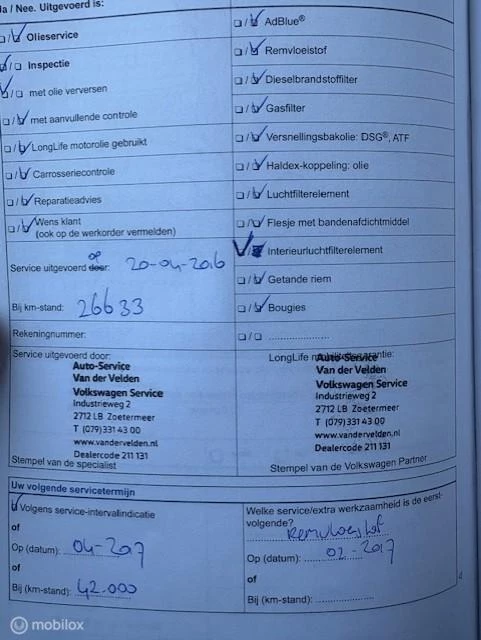 Ja / Nee. Uitgevoerd is:
□/□ Olieservice
□/□ Inspectie
□/□ met olie verversen
□/□ met aanvullende controle
□/□ LongLife motorolie gebruikt
□/□ Carrosseriecontrole
□/□ Reparatieadvies
□/□ Wens klant
(ook op de werkorder vermelden)
Service uitgevoerd door: op 20-04-2016
Bij km-stand: 26633
Rekeningnummer:
Service uitgevoerd door:
Auto-Service
Van der Velden
Volkswagen Service
Industrieweg 2
2712 LB Zoetermeer
T (079) 331 43 00
www.vandervelden.nl
Dealercode 211 131
Stempel van de specialist
□/□ AdBlue®
□/□ Remvloeistof
□/□ Dieselbrandstoffilter
□/□ Gasfilter
□/□ Versnellingsbakolie: DSG®, ATF
□/□ Haldex-koppeling: olie
□/□ Luchtfilterelement
□/□ Flesje met bandenafdichtmiddel
□/□ Interieurluchtfilterelement
□/□ Getande riem
□/□ Bougies
□/□ ....................
LongLife mobiliteitsgarantie:
Auto-Service
Van der Velden
Volkswagen Service
Industrieweg 2
2712 LB Zoetermeer
T (079) 331 43 00
www.vandervelden.nl
Dealercode 211 131
Stempel van de Volkswagen Partner
Uw volgende servicetermijn
Volgens service-intervalindicatie
of
Op (datum): 04-2017
of
Bij (km-stand): 42.000
Welke service/extra werkzaamheid is de eerst-
volgende?
Remvloeistof
Op (datum): 02-2017
of
Bij (km-stand): ....................
mobilox